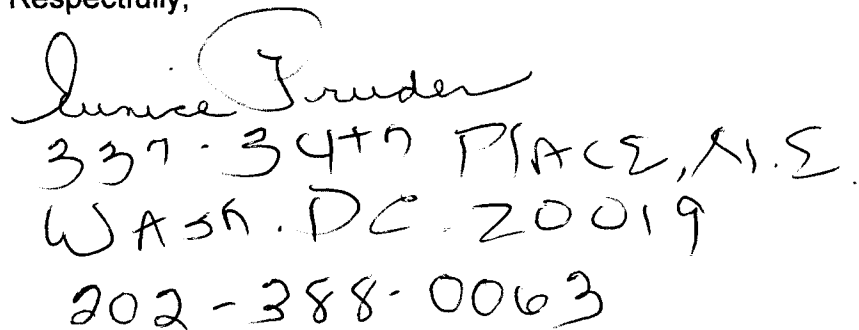 Respectfully,
Eunice Pruden
337-34th PlACE, N.E.
WAsh. DC. 20019
202-388-0063